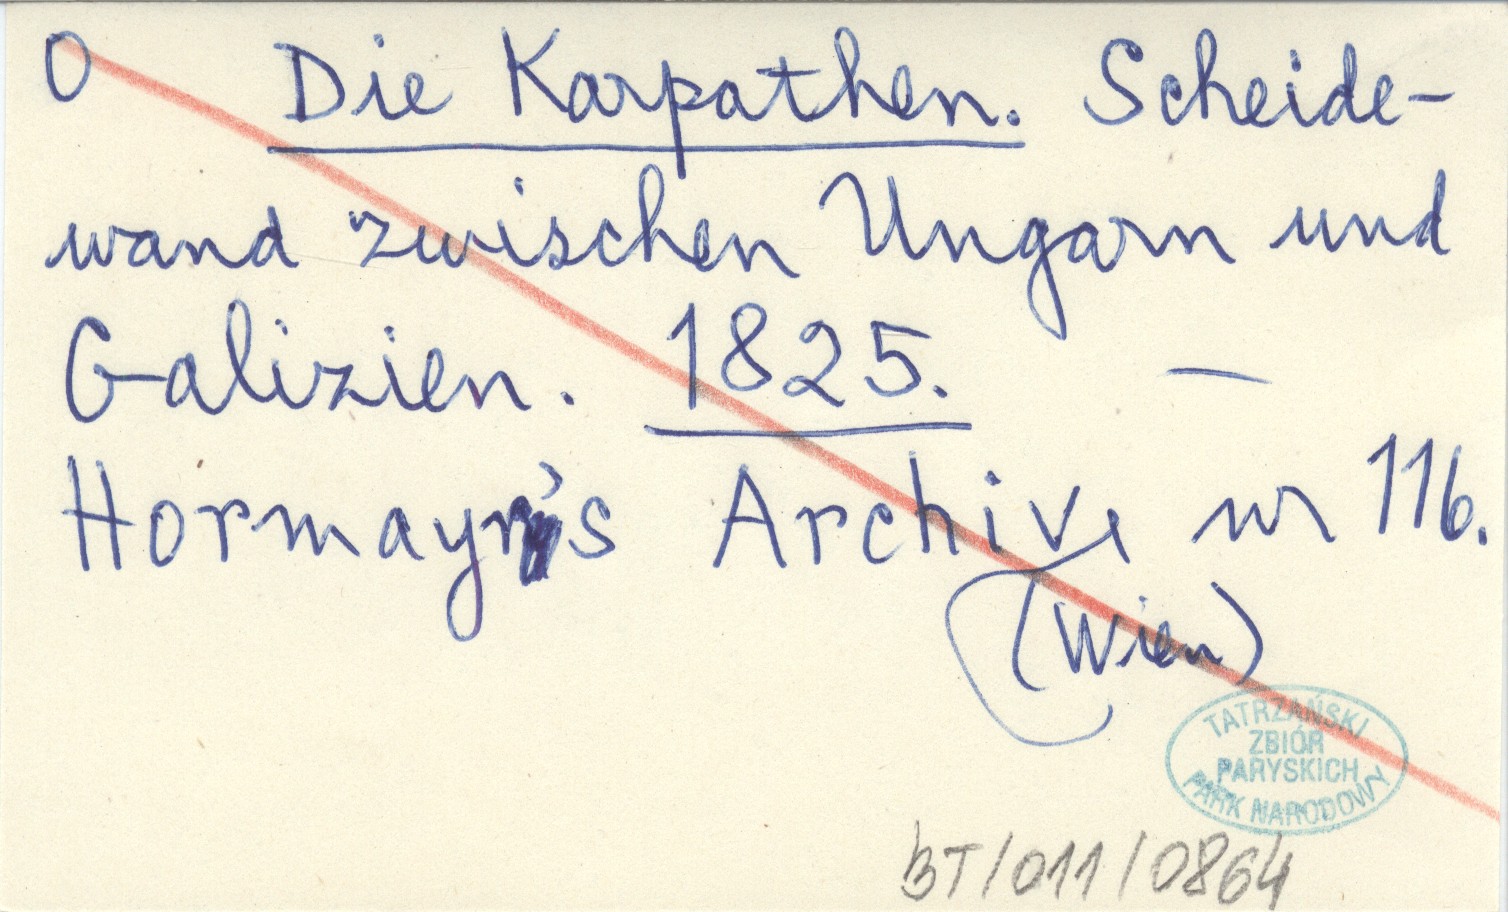 0 Die Karpathen. Scheide-
wand zwischen Ungarn und
Galizien. 1825. —
Hormayr's Archiv, nr 116.
(Wien)
TATRZAŃSKI
ZBIÓR
PARYSKICH
PARK NARODOWY
BT/011/0864